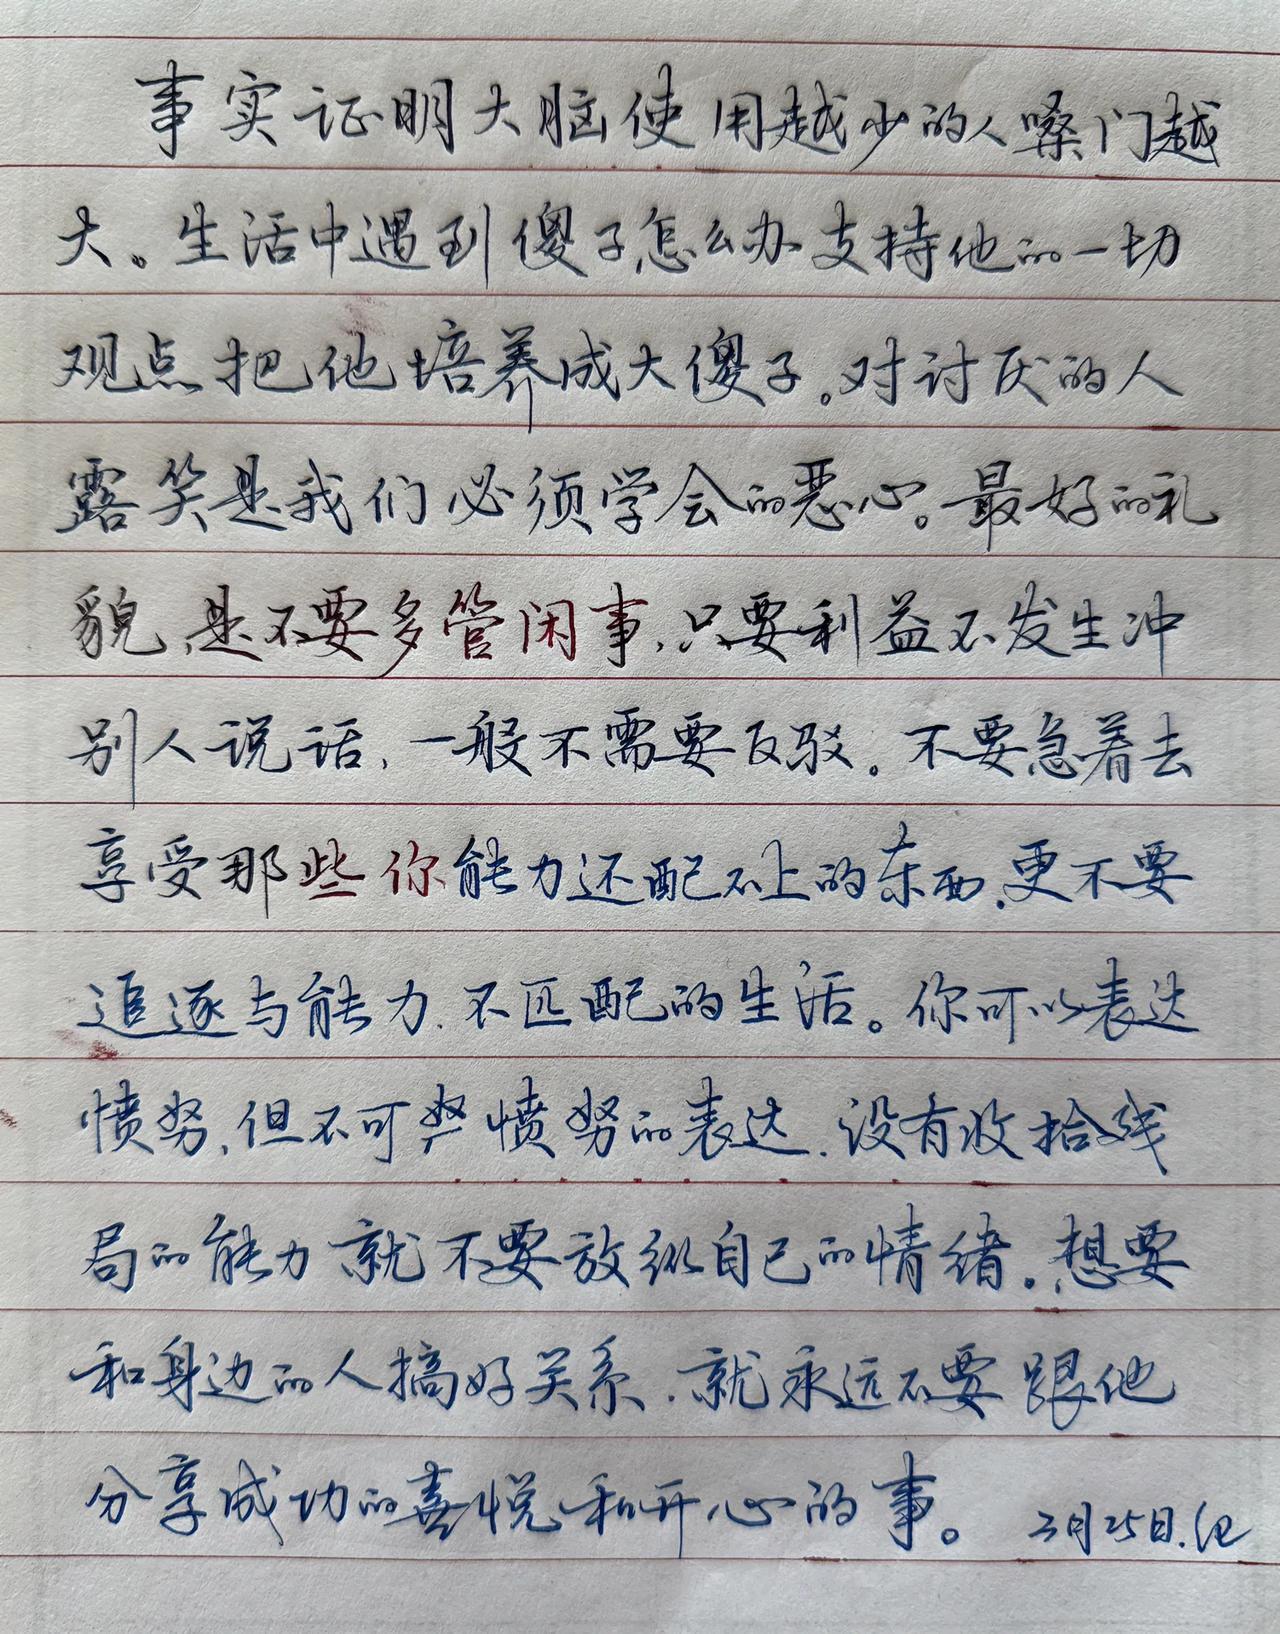 事实证明大脑使用越少的人嗓门越
大。生活中遇到傻子怎么办支持他的一切
观点把他培养成大傻子。对讨厌的人
露笑是我们必须学会的恶心。最好的礼
貌,是不要多管闲事,只要利益不发生冲
别人说话,一般不需要反驳。不要急着去
享受那些你能力还配不上的东西,更不要
追逐与能力不匹配的生活。你可以表达
愤努,但不可 愤努的表达,没有收拾残
局的能力就不要放纵自己的情绪。想要
和身边的人搞好关系,就永远不要跟他
分享成功的喜悦和开心的事。 3月25日.